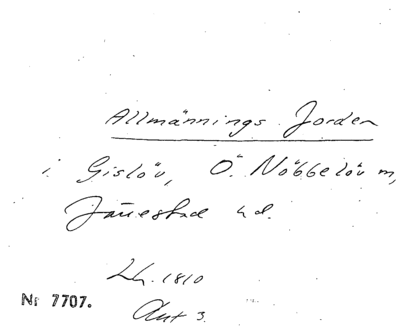 Allmännings Jorden
i Gislöv, Ö. Nöbbelöv m,
Järrestad hd.
Lh. 1810
Nr 7707.
Akt 3.